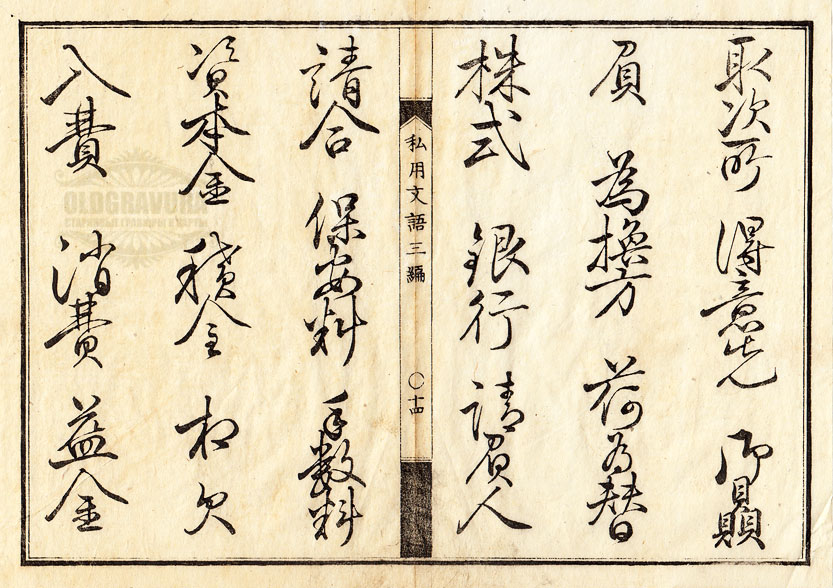 取次所 得意先 御贔
屓 為換方 荷為替
株式 銀行 請負人
私用文語三編
〇十四
請合 保安料 手数料
資本金 積金 相欠
入費 消費 益金
OLDGRAVURA
СТАРИННЫЕ ГРАВЮРЫ И КАРТЫ